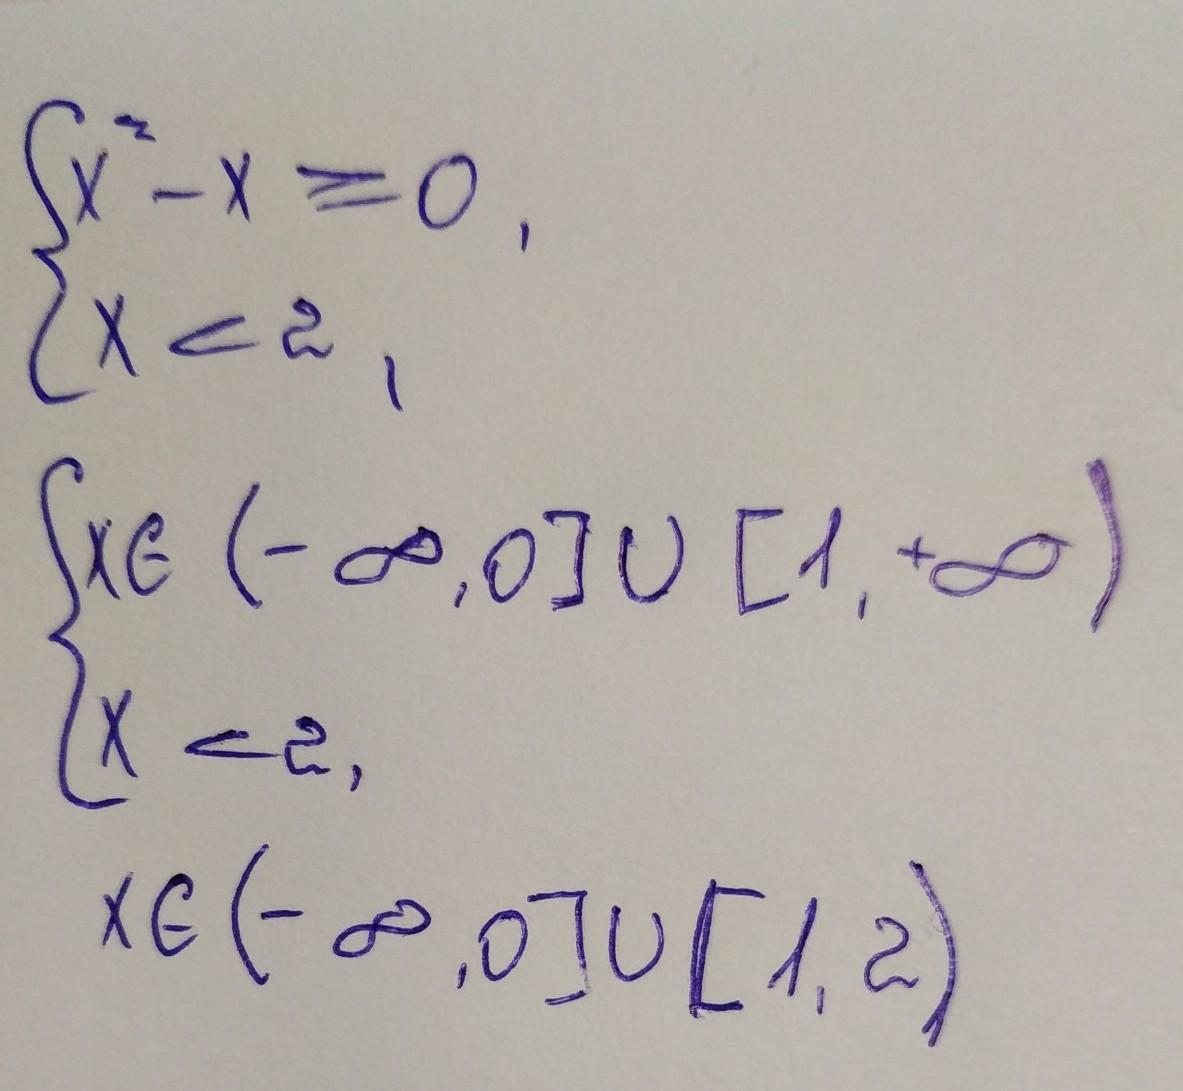 {x² - x ≥ 0,
{x < 2,
{x∈ (-∞,0]∪[1,+∞)
{x < 2,
x∈(-∞,0]∪[1,2)